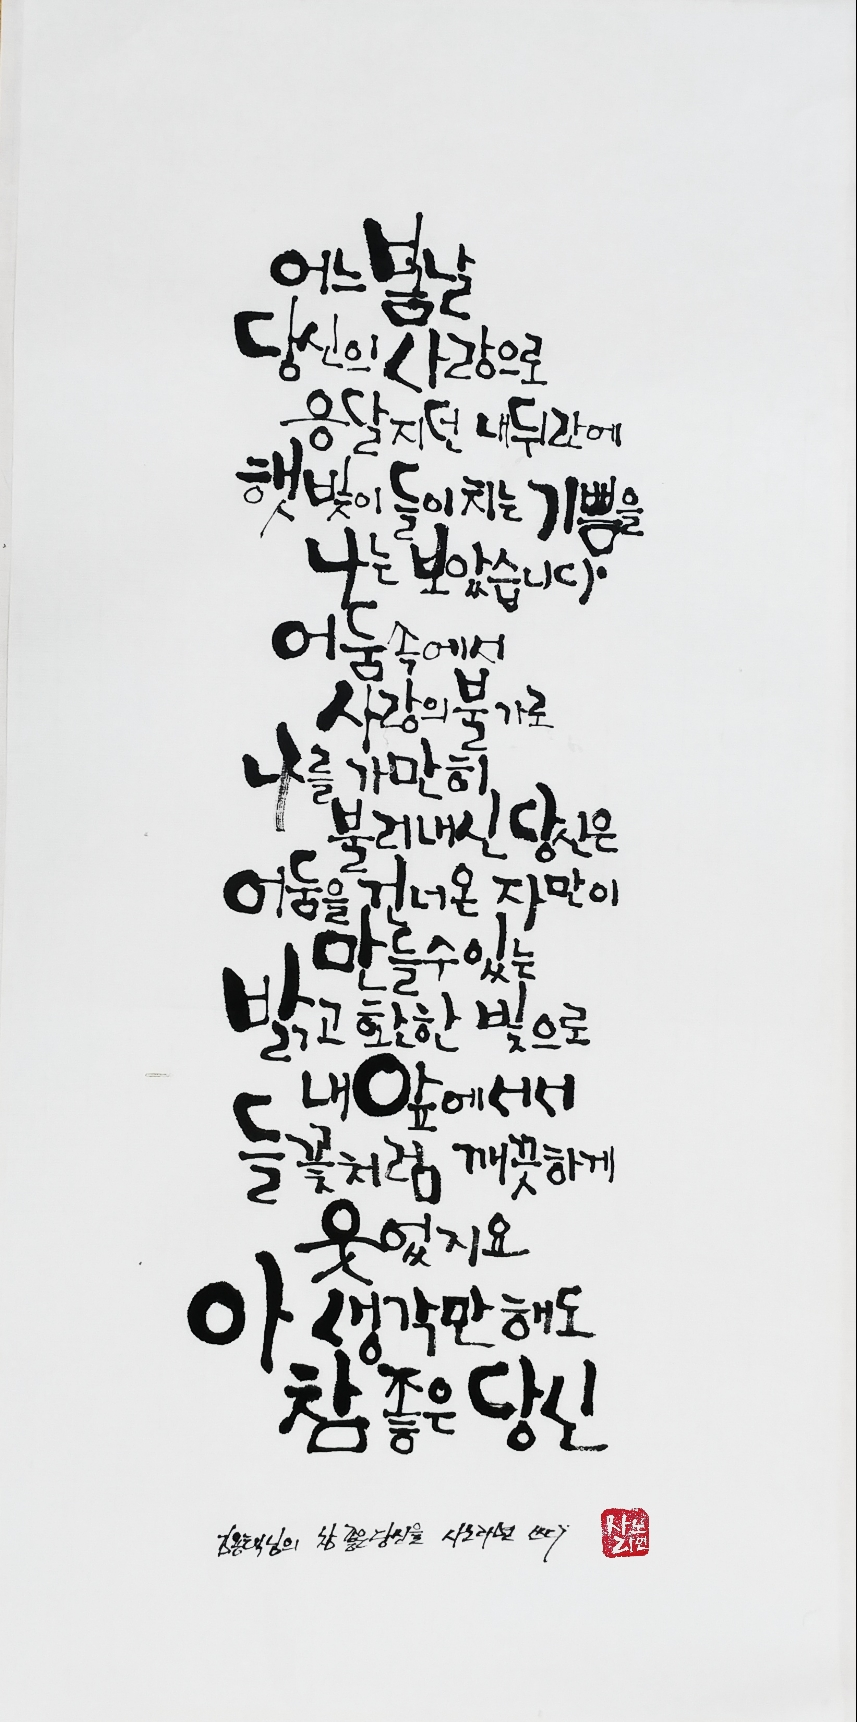 어느 봄날
당신의 사랑으로
응달지던 내 뒤란에
햇빛이 들이치는 기쁨을
나는 보았습니다.
어둠 속에서
사랑의 불가로
나를 가만히
불러내신 당신은
어둠을 건너온 자만이
만들 수 있는
밝고 환한 빛으로
내 앞에 서서
들꽃처럼 깨끗하게
웃었지요
아 생각만 해도
참 좋은 당신
김용택님의 참 좋은 당신을